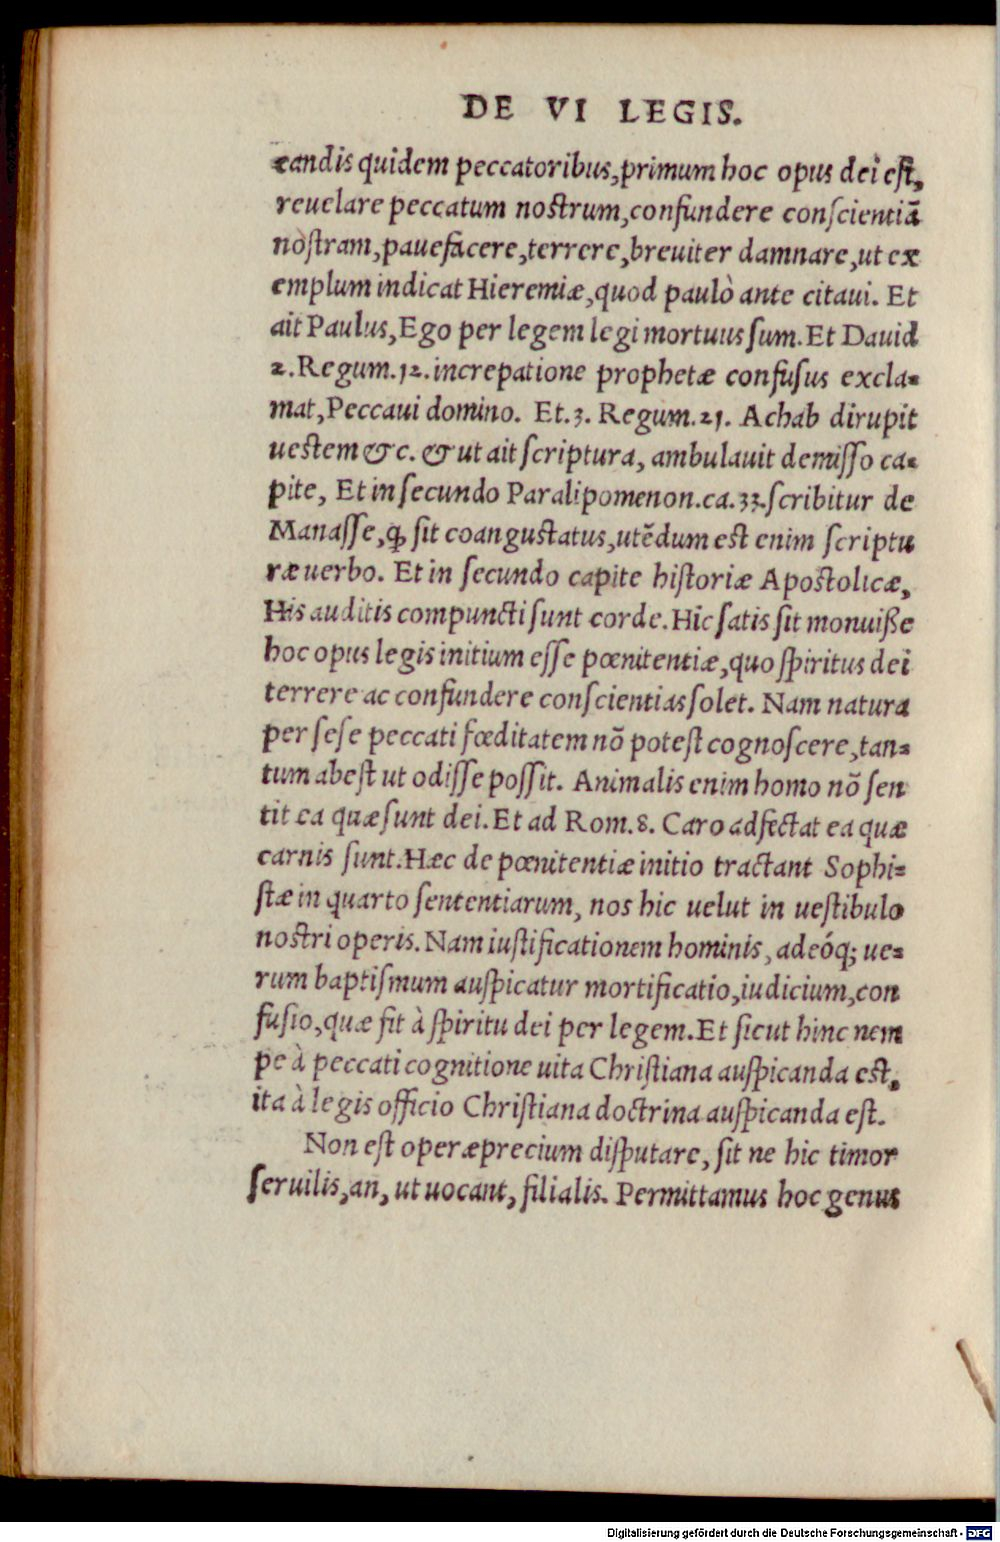 DE VI LEGIS.
candis quidem peccatoribus, primum hoc opus dei est,
reuelare peccatum nostrum, confundere conscientiā
nostram, pauefacere, terrere, breuiter damnare, ut ex
emplum indicat Hieremiæ, quod paulò ante citaui. Et
ait Paulus, Ego per legem legi mortuus sum. Et Dauid
2. Regum. 12. increpatione prophetæ confusus excla-
mat, Peccaui domino. Et. 3. Regum. 21. Achab dirupit
uestem &c. & ut ait scriptura, ambulauit demisso ca-
pite, Et in secundo Paralipomenon. ca. 33. scribitur de
Manasse, ꝙ sit coangustatus, utēdum est enim scriptu
ræ uerbo. Et in secundo capite historiæ Apostolicæ,
His auditis compuncti sunt corde. Hic satis sit monuiße
hoc opus legis initium esse pœnitentiæ, quo spiritus dei
terrere ac confundere conscientias solet. Nam natura
per sese peccati fœditatem nō potest cognoscere, tan-
tum abest ut odisse possit. Animalis enim homo nō sen
tit ea quæ sunt dei. Et ad Rom. 8. Caro adfectat ea quæ
carnis sunt. Hæc de pœnitentiæ initio tractant Sophi-
stæ in quarto sententiarum, nos hic uelut in uestibulo
nostri operis. Nam iustificationem hominis, adeóq; ue-
rum baptismum auspicatur mortificatio, iudicium, con
fusio, quæ fit à spiritu dei per legem. Et sicut hinc nem
pe à peccati cognitione uita Christiana auspicanda est,
ita à legis officio Christiana doctrina auspicanda est.
Non est operæprecium disputare, sit ne hic timor
seruilis, an, ut uocant, filialis. Permittamus hoc genus
Digitalisierung gefördert durch die Deutsche Forschungsgemeinschaft - DFG